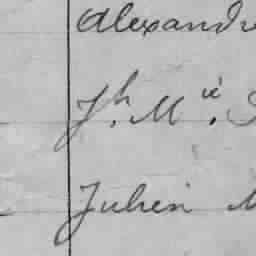 Alexand
Jh. Mie.
Julien